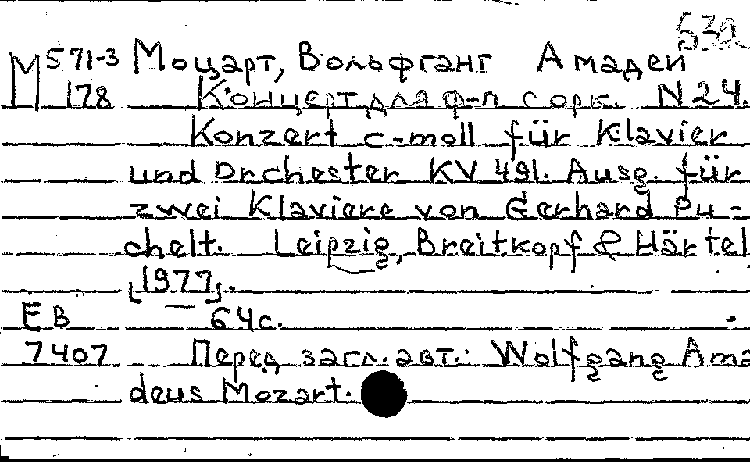 53а
М 571-3 Моцарт, Вольфганг Амадей
178 Концерт для ф-п с орк. N 24.
Konzert c-moll für Klavier
und Orchester KV 491. Ausg. für
zwei Klaviere von Gerhard Pu-
chelt. Leipzig, Breitkopf & Härtel,
[1977].
EB 64с.
7407 Перед загл. авт.: Wolfgang Ama
deus Mozart.